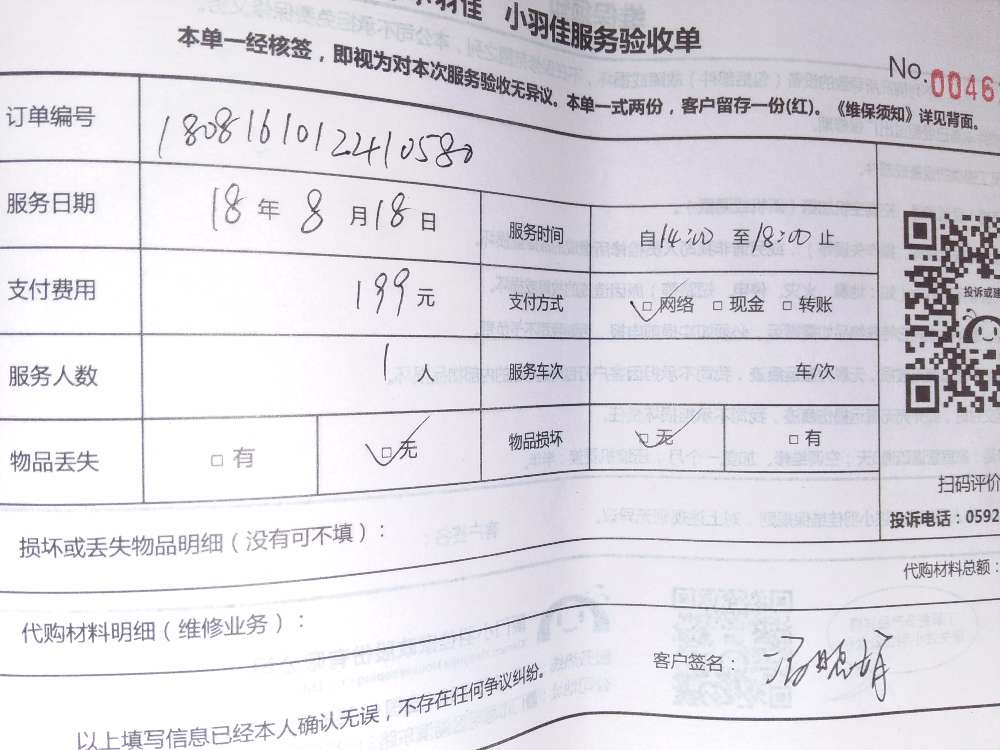 小羽佳服务验收单
本单一经核签，即视为对本次服务验收无异议。本单一式两份，客户留存一份(红)。《维保须知》详见背面。
No.0046
订单编号 18081610122410580
服务日期 18 年 8 月 18 日 服务时间 自14:00 至18:00 止
支付费用 199 元 支付方式 □ 网络 □ 现金 □ 转账
服务人数 1 人 服务车次 车/次
物品丢失 □ 有 □ 无 物品损坏 □ 无 □ 有
投诉或建
扫码评价
投诉电话：0592
损坏或丢失物品明细（没有可不填）：
代购材料总额：
代购材料明细（维修业务）：
客户签名：
以上填写信息已经本人确认无误，不存在任何争议纠纷。